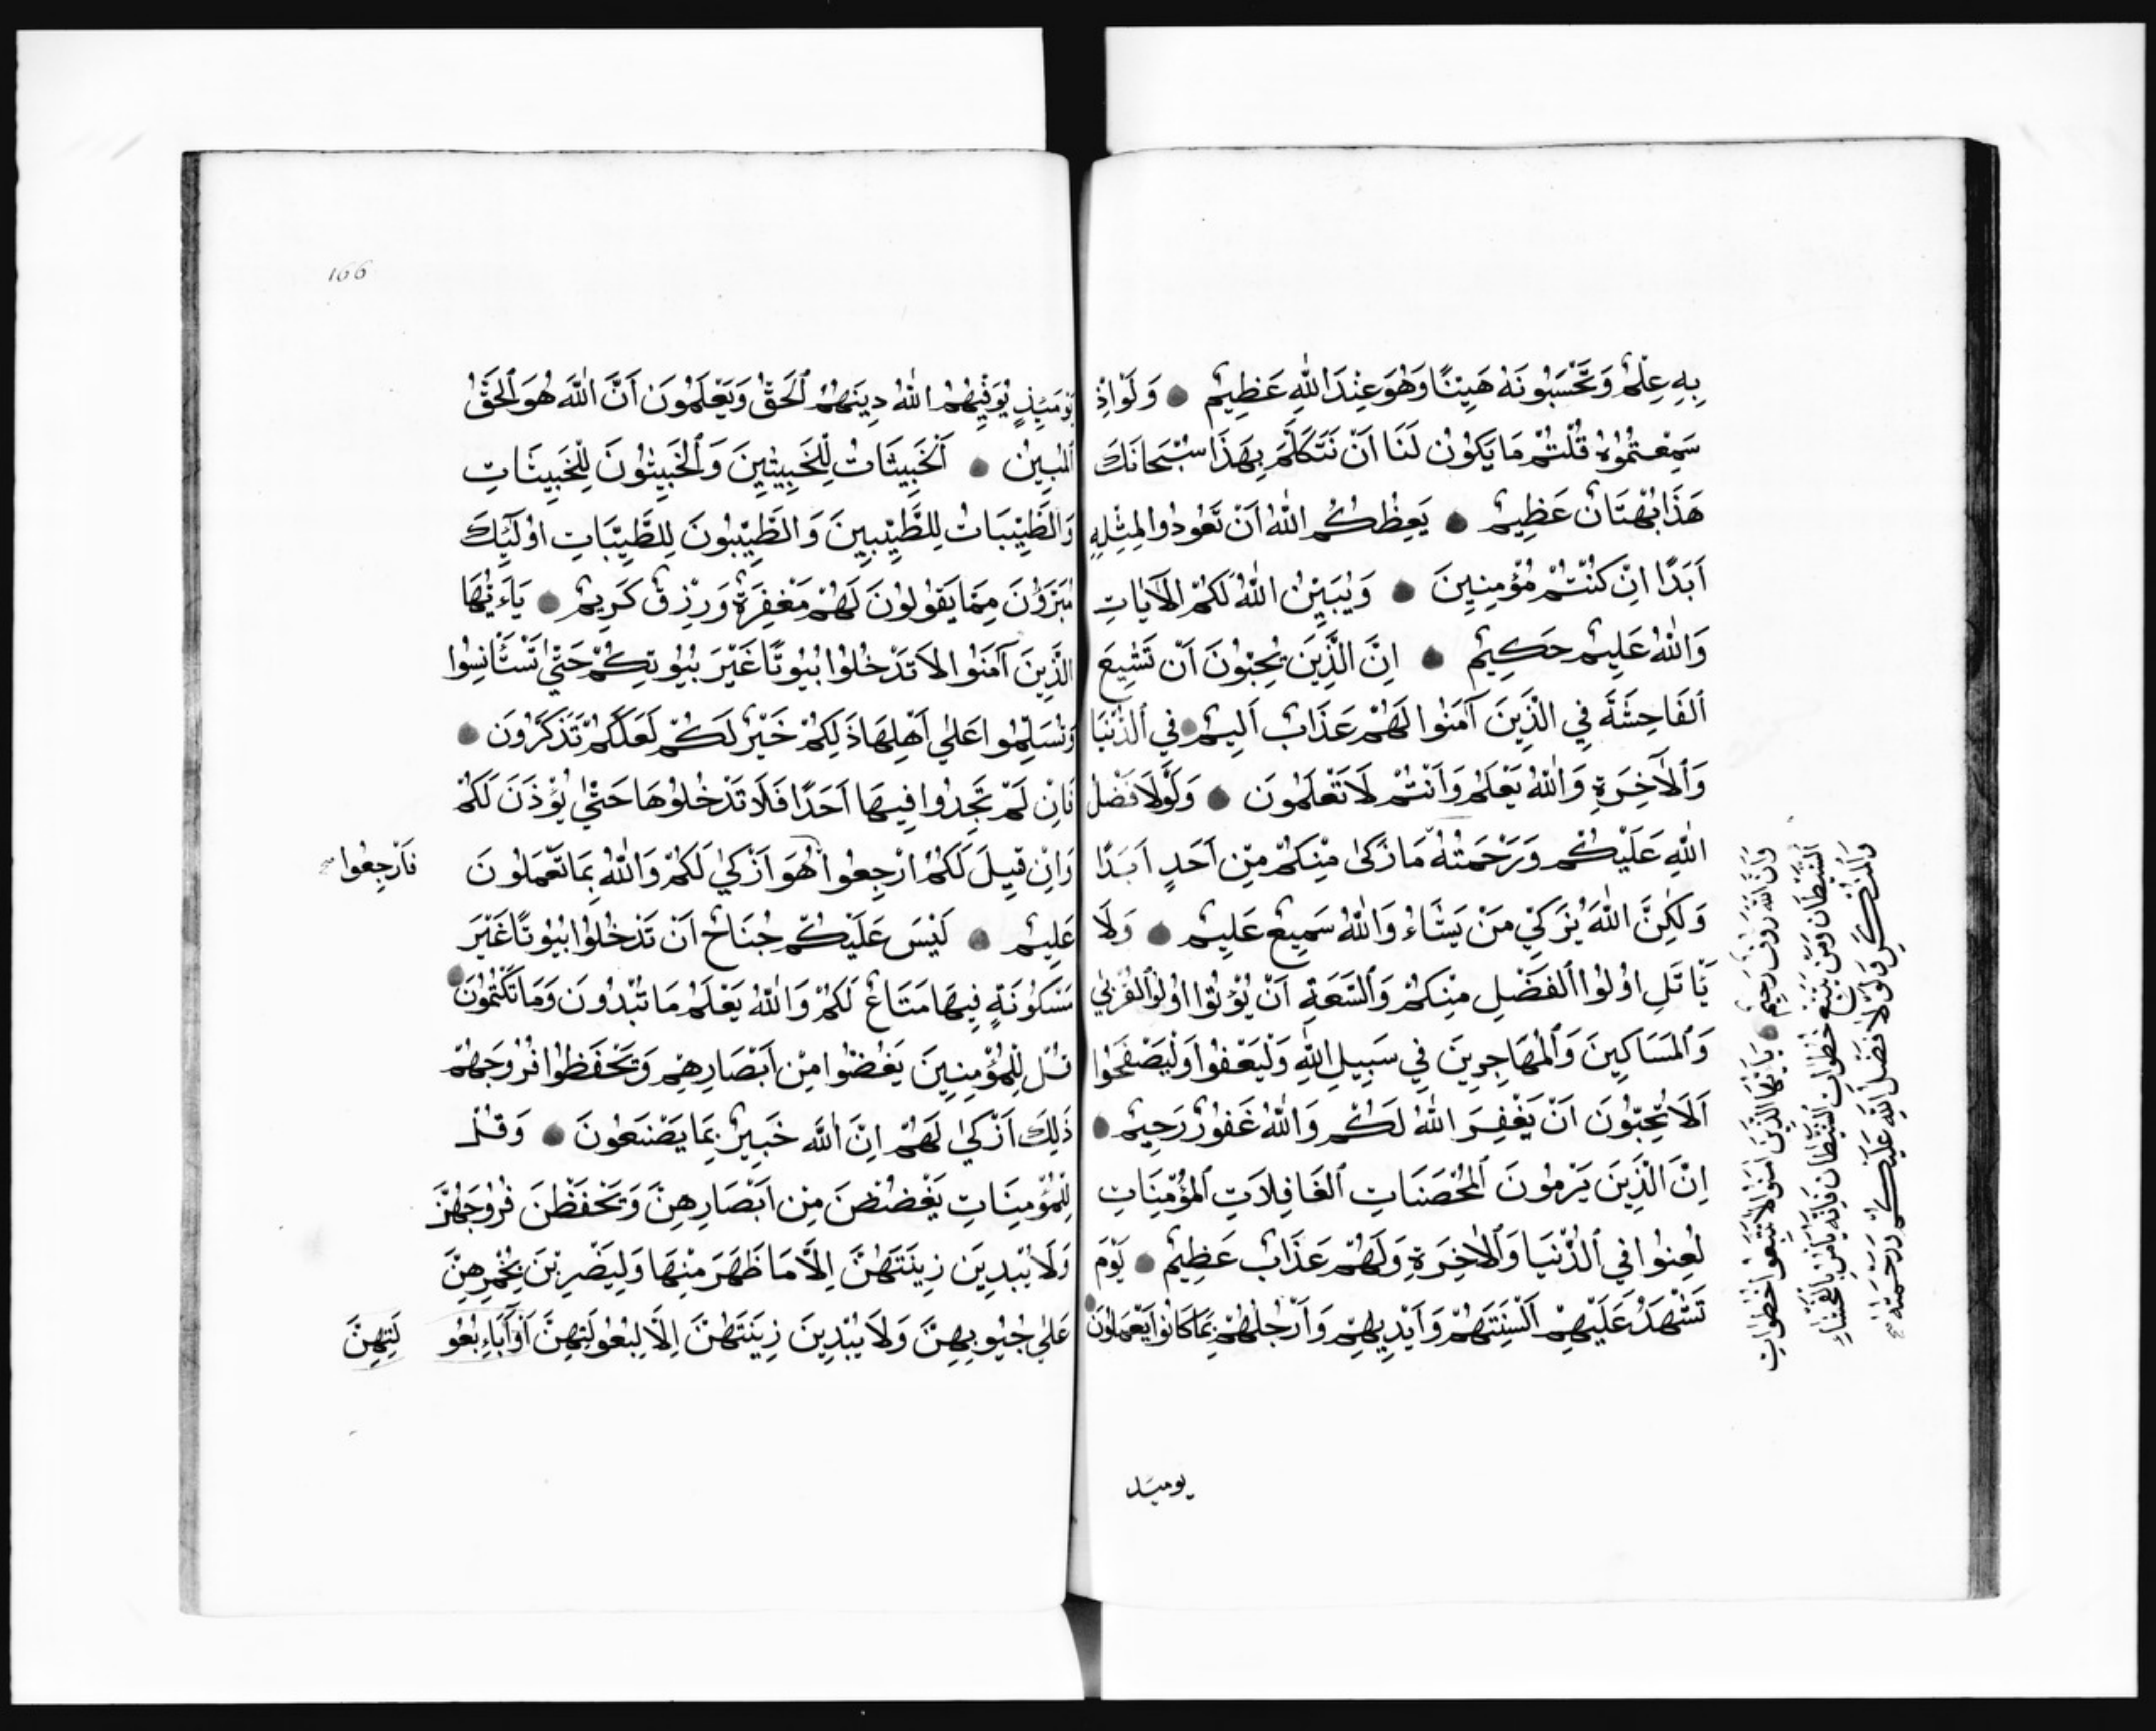 بِهِ عِلْمٌ وَتَحْسَبُونَهُ هَيِّنًا وَهُوَ عِنْدَ اللّٰهِ عَظِيمٌ وَلَوْلَا إِذْ
سَمِعْتُمُوهُ قُلْتُمْ مَا يَكُونُ لَنَا اَنْ نَتَكَلَّمَ بِهَذَا سُبْحَانَكَ
هَذَا بُهْتَانٌ عَظِيمٌ يَعِظُكُمُ اللّٰهُ اَنْ تَعُودُوا لِمِثْلِهِ
اَبَدًا اِنْ كُنْتُمْ مُؤْمِنِينَ وَيُبَيِّنُ اللّٰهُ لَكُمُ الْآيَاتِ
وَاللّٰهُ عَلِيمٌ حَكِيمٌ اِنَّ الَّذِينَ يُحِبُّونَ اَنْ تَشِيعَ
الْفَاحِشَةُ فِي الَّذِينَ آمَنُوا لَهُمْ عَذَابٌ اَلِيمٌ فِي الدُّنْيَا
وَالْآخِرَةِ وَاللّٰهُ يَعْلَمُ وَاَنْتُمْ لَا تَعْلَمُونَ وَلَوْلَا فَضْلُ
اللّٰهِ عَلَيْكُمْ وَرَحْمَتُهُ مَا زَكٰى مِنْكُمْ مِنْ اَحَدٍ اَبَدًا
وَلَكِنَّ اللّٰهَ يُزَكِّي مَنْ يَشَاءُ وَاللّٰهُ سَمِيعٌ عَلِيمٌ وَلَا
يَاتَلِ اُولُوا الْفَضْلِ مِنْكُمْ وَالسَّعَةِ اَنْ يُؤْتُوا اُولُوا الْقُرْبٰي
وَالْمَسَاكِينَ وَالْمُهَاجِرِينَ فِي سَبِيلِ اللّٰهِ وَلْيَعْفُوا وَلْيَصْفَحُوا
اَلَا تُحِبُّونَ اَنْ يَغْفِرَ اللّٰهُ لَكُمْ وَاللّٰهُ غَفُورٌ رَحِيمٌ
اِنَّ الَّذِينَ يَرْمُونَ الْمُحْصَنَاتِ الْغَافِلَاتِ الْمُؤْمِنَاتِ
لُعِنُوا فِي الدُّنْيَا وَالْاٰخِرَةِ وَلَهُمْ عَذَابٌ عَظِيمٌ يَوْمَ
تَشْهَدُ عَلَيْهِمْ اَلْسِنَتُهُمْ وَاَيْدِيهِمْ وَاَرْجُلُهُمْ بِمَا كَانُوا يَعْمَلُونَ
وَاَنَّ اللّٰهَ رَؤُفٌ رَحِيمٌ يَا اَيُّهَا الَّذِينَ اٰمَنُوا لَا تَتَّبِعُوا خُطُوَاتِ
الشَّيْطَانِ وَمَنْ يَتَّبِعْ خُطُوَاتِ الشَّيْطَانِ فَاِنَّهُ يَأْمُرُ بِالْفَحْشَاءِ
وَالْمُنْكَرِ وَلَوْلَا فَضْلُ اللّٰهِ عَلَيْكُمْ وَرَحْمَتُهُ
يوميذ
166
يَوْمَئِذٍ يُوَفِّيهِمُ اللّٰهُ دِينَهُمُ الْحَقَّ وَيَعْلَمُونَ اَنَّ اللّٰهَ هُوَ الْحَقُّ
الْمُبِينُ اَلْخَبِيثَاتُ لِلْخَبِيثِينَ وَالْخَبِيثُونَ لِلْخَبِيثَاتِ
وَالطَّيِّبَاتُ لِلطَّيِّبِينَ وَالطَّيِّبُونَ لِلطَّيِّبَاتِ اُولَئِكَ
مُبَرَّؤُنَ مِمَّا يَقُولُونَ لَهُمْ مَغْفِرَةٌ وَرِزْقٌ كَرِيمٌ يَاءَيُّهَا
الَّذِينَ آمَنُوا لَا تَدْخُلُوا بُيُوتًا غَيْرَ بُيُوتِكُمْ حَتّٰي تَسْتَأْنِسُوا
وَتُسَلِّمُوا عَلٰي اَهْلِهَا ذَلِكُمْ خَيْرٌ لَكُمْ لَعَلَّكُمْ تَذَكَّرُونَ
فَاِنْ لَمْ تَجِدُوا فِيهَا اَحَدًا فَلَا تَدْخُلُوهَا حَتّٰي يُؤْذَنَ لَكُمْ
وَاِنْ قِيلَ لَكُمُ ارْجِعُوا هُوَ اَزْكٰي لَكُمْ وَاللّٰهُ بِمَا تَعْمَلُونَ
فَارْجِعُوا
عَلِيمٌ لَيْسَ عَلَيْكُمْ جُنَاحٌ اَنْ تَدْخُلُوا بُيُوتًا غَيْرَ
مَسْكُونَةٍ فِيهَا مَتَاعٌ لَكُمْ وَاللّٰهُ يَعْلَمُ مَا تُبْدُونَ وَمَا تَكْتُمُونَ
قُلْ لِلْمُؤْمِنِينَ يَغُضُّوا مِنْ اَبْصَارِهِمْ وَيَحْفَظُوا فُرُوجَهُمْ
ذَلِكَ اَزْكٰي لَهُمْ اِنَّ اللّٰهَ خَبِيرٌ بِمَا يَصْنَعُونَ وَقُلْ
لِلْمُؤْمِنَاتِ يَغْضُضْنَ مِنْ اَبْصَارِهِنَّ وَيَحْفَظْنَ فُرُوجَهُنَّ
وَلَا يُبْدِينَ زِينَتَهُنَّ اِلَّا مَا ظَهَرَ مِنْهَا وَلْيَضْرِبْنَ بِخُمُرِهِنَّ
عَلٰي جُيُوبِهِنَّ وَلَا يُبْدِينَ زِينَتَهُنَّ اِلَّا لِبُعُولَتِهِنَّ اَوْ آبَاءِ بُعُو
لَتِهِنَّ